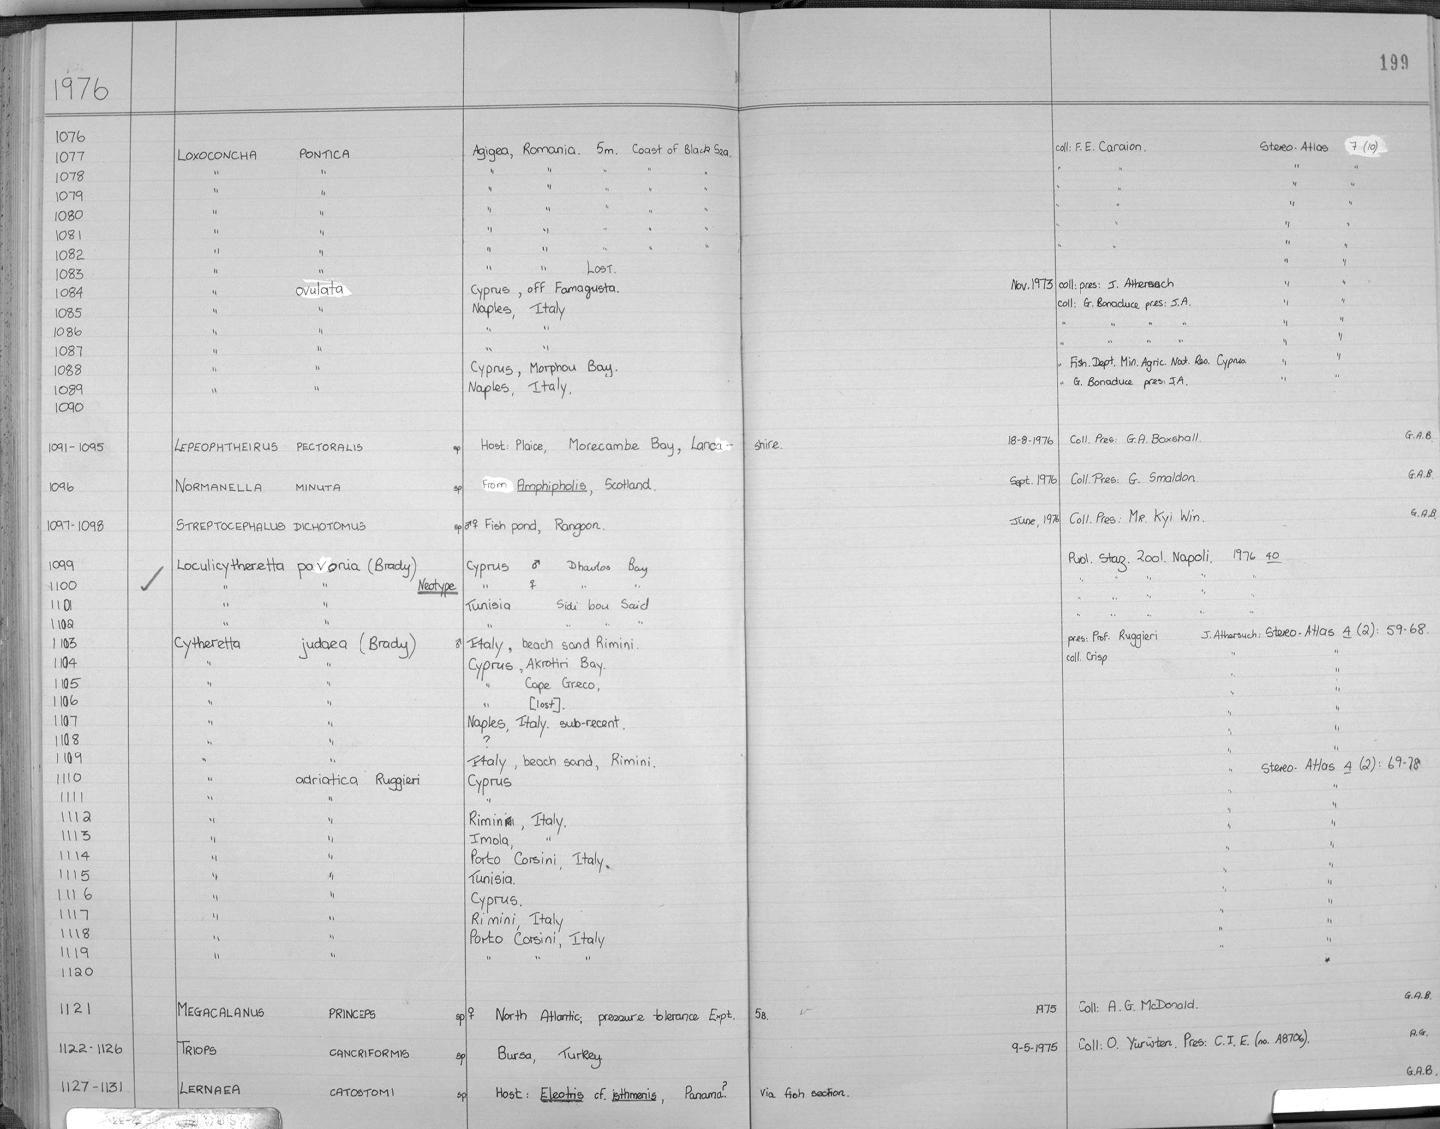 199
1976
1076
1077 LOXOCONCHA PONTICA Agigea, Romania. 5m. Coast of Black Sea. coll: F.E. Caraion. Stereo-Atlas 7 (10)
1078 " " " " " " " " " " "
1079 " " " " " " " " " " "
1080 " " " " " " " " " " "
1081 " " " " " " " " " " "
1082 " " " " " " " " " " "
1083 " " " " Lost. " "
1084 " ovulata Cyprus, off Famagusta. Nov. 1973 coll: pres: J. Athersuch " "
1085 " " Naples, Italy coll: G. Bonaduce pres: J.A. " "
1086 " " " " " " " " " "
1087 " " " " " " " " " "
1088 " " Cyprus, Morphou Bay. " Fish. Dept. Min. Agric. Nat. Res. Cyprus " "
1089 " " Naples, Italy. " G. Bonaduce pres: J.A. " "
1090
1091-1095 LEPEOPHTHEIRUS PECTORALIS sp Host: Plaice, Morecambe Bay, Lanca-shire. 18-8-1976 Coll. Pres: G.A. Boxshall. G.A.B.
1096 NORMANELLA MINUTA sp From Amphipholis, Scotland. Sept. 1976 Coll. Pres: G. Smaldon. G.A.B.
1097-1098 STREPTOCEPHALUS DICHOTOMUS sp ♂♀ Fish pond, Rangoon. June, 1976 Coll. Pres: Mr. Kyi Win. G.A.B.
1099 Loculicytheretta pavonia (Brady) Cyprus ♂ Dhavlos Bay Publ. Staz. Zool. Napoli. 1976 40
1100 ✓ " " Neotype " ♀ " " " " " " "
1101 " " Tunisia Sidi bou Said " " " " "
1102 " " " " " " " " " " "
1103 Cytheretta judaea (Brady) ♂ Italy, beach sand Rimini. pres: Prof. Ruggieri J. Athersuch: Stereo-Atlas 4 (2): 59-68.
1104 " " Cyprus, Akrotiri Bay. coll. Crisp " "
1105 " " " Cape Greco, " "
1106 " " " [lost]. " "
1107 " " Naples, Italy. sub-recent. " "
1108 " " ? " "
1109 " " Italy, beach sand, Rimini. " "
1110 " adriatica Ruggieri Cyprus " Stereo-Atlas 4 (2): 69-78
1111 " " " " "
1112 " " Rimini, Italy. " "
1113 " " Imola, " " "
1114 " " Porto Corsini, Italy. " "
1115 " " Tunisia. " "
1116 " " Cyprus. " "
1117 " " Rimini, Italy " "
1118 " " Porto Corsini, Italy " "
1119 " " " " " "
1120
1121 MEGACALANUS PRINCEPS sp ♀ North Atlantic, pressure tolerance Expt. 58. 1975 Coll: A.G. McDonald. G.A.B.
1122-1126 TRIOPS CANCRIFORMIS sp Bursa, Turkey 9-5-1975 Coll: O. Pres: C.I.E. (no. A8706). A.G.
1127-1131 LERNAEA CATOSTOMI sp Host: Eleotris cf. isthmenis, Panama? via fish section. G.A.B.